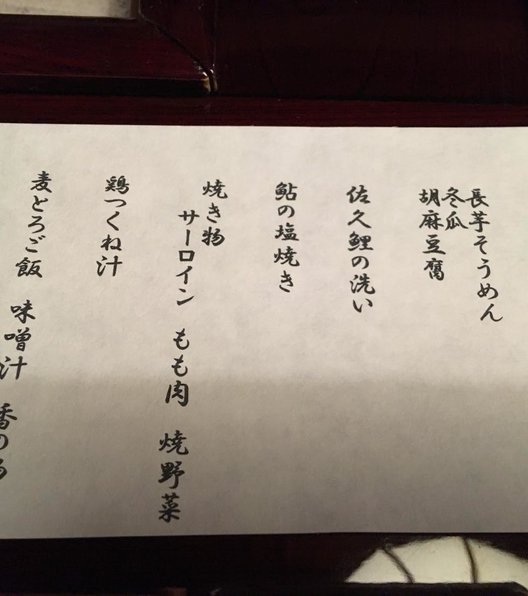 長芋そうめん
冬瓜
胡麻豆腐
佐久鯉の洗い
鮎の塩焼き
焼き物
サーロイン もも肉 焼野菜
鶏つくね汁
麦とろご飯 味噌汁 香の